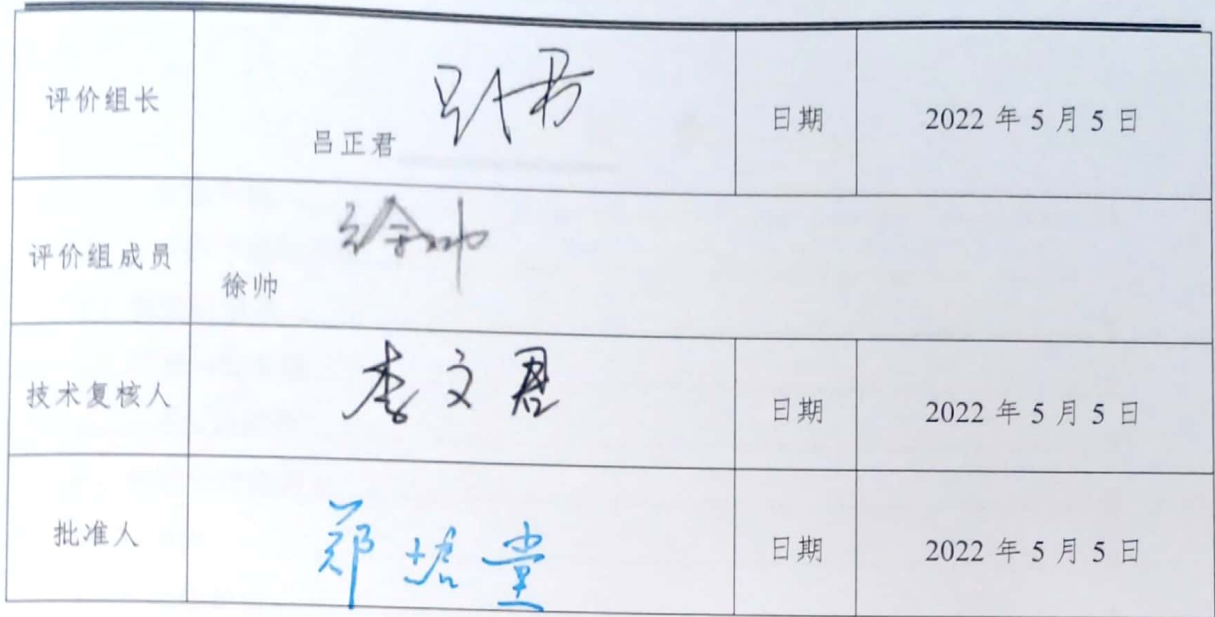 评价组长 吕正君 日期 2022 年 5 月 5 日
评价组成员 徐帅 徐帅
技术复核人 李文君 日期 2022 年 5 月 5 日
批准人 郑 堂 日期 2022 年 5 月 5 日